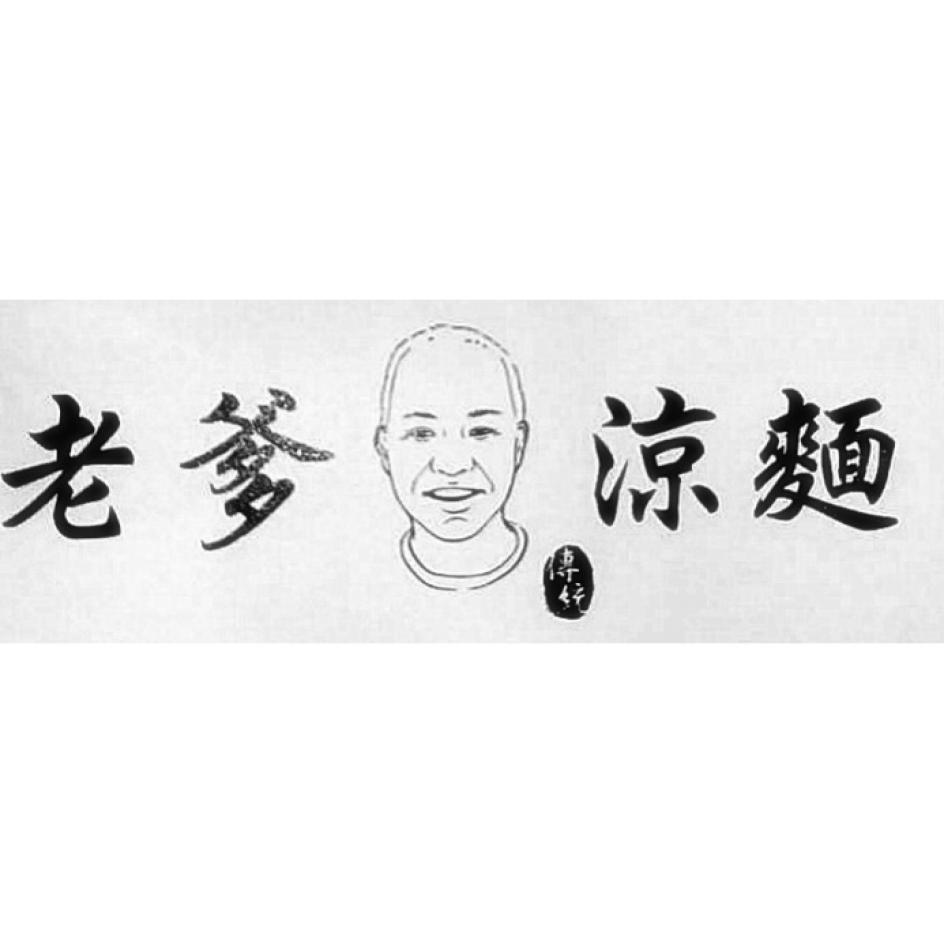 老爹涼麵
傳統